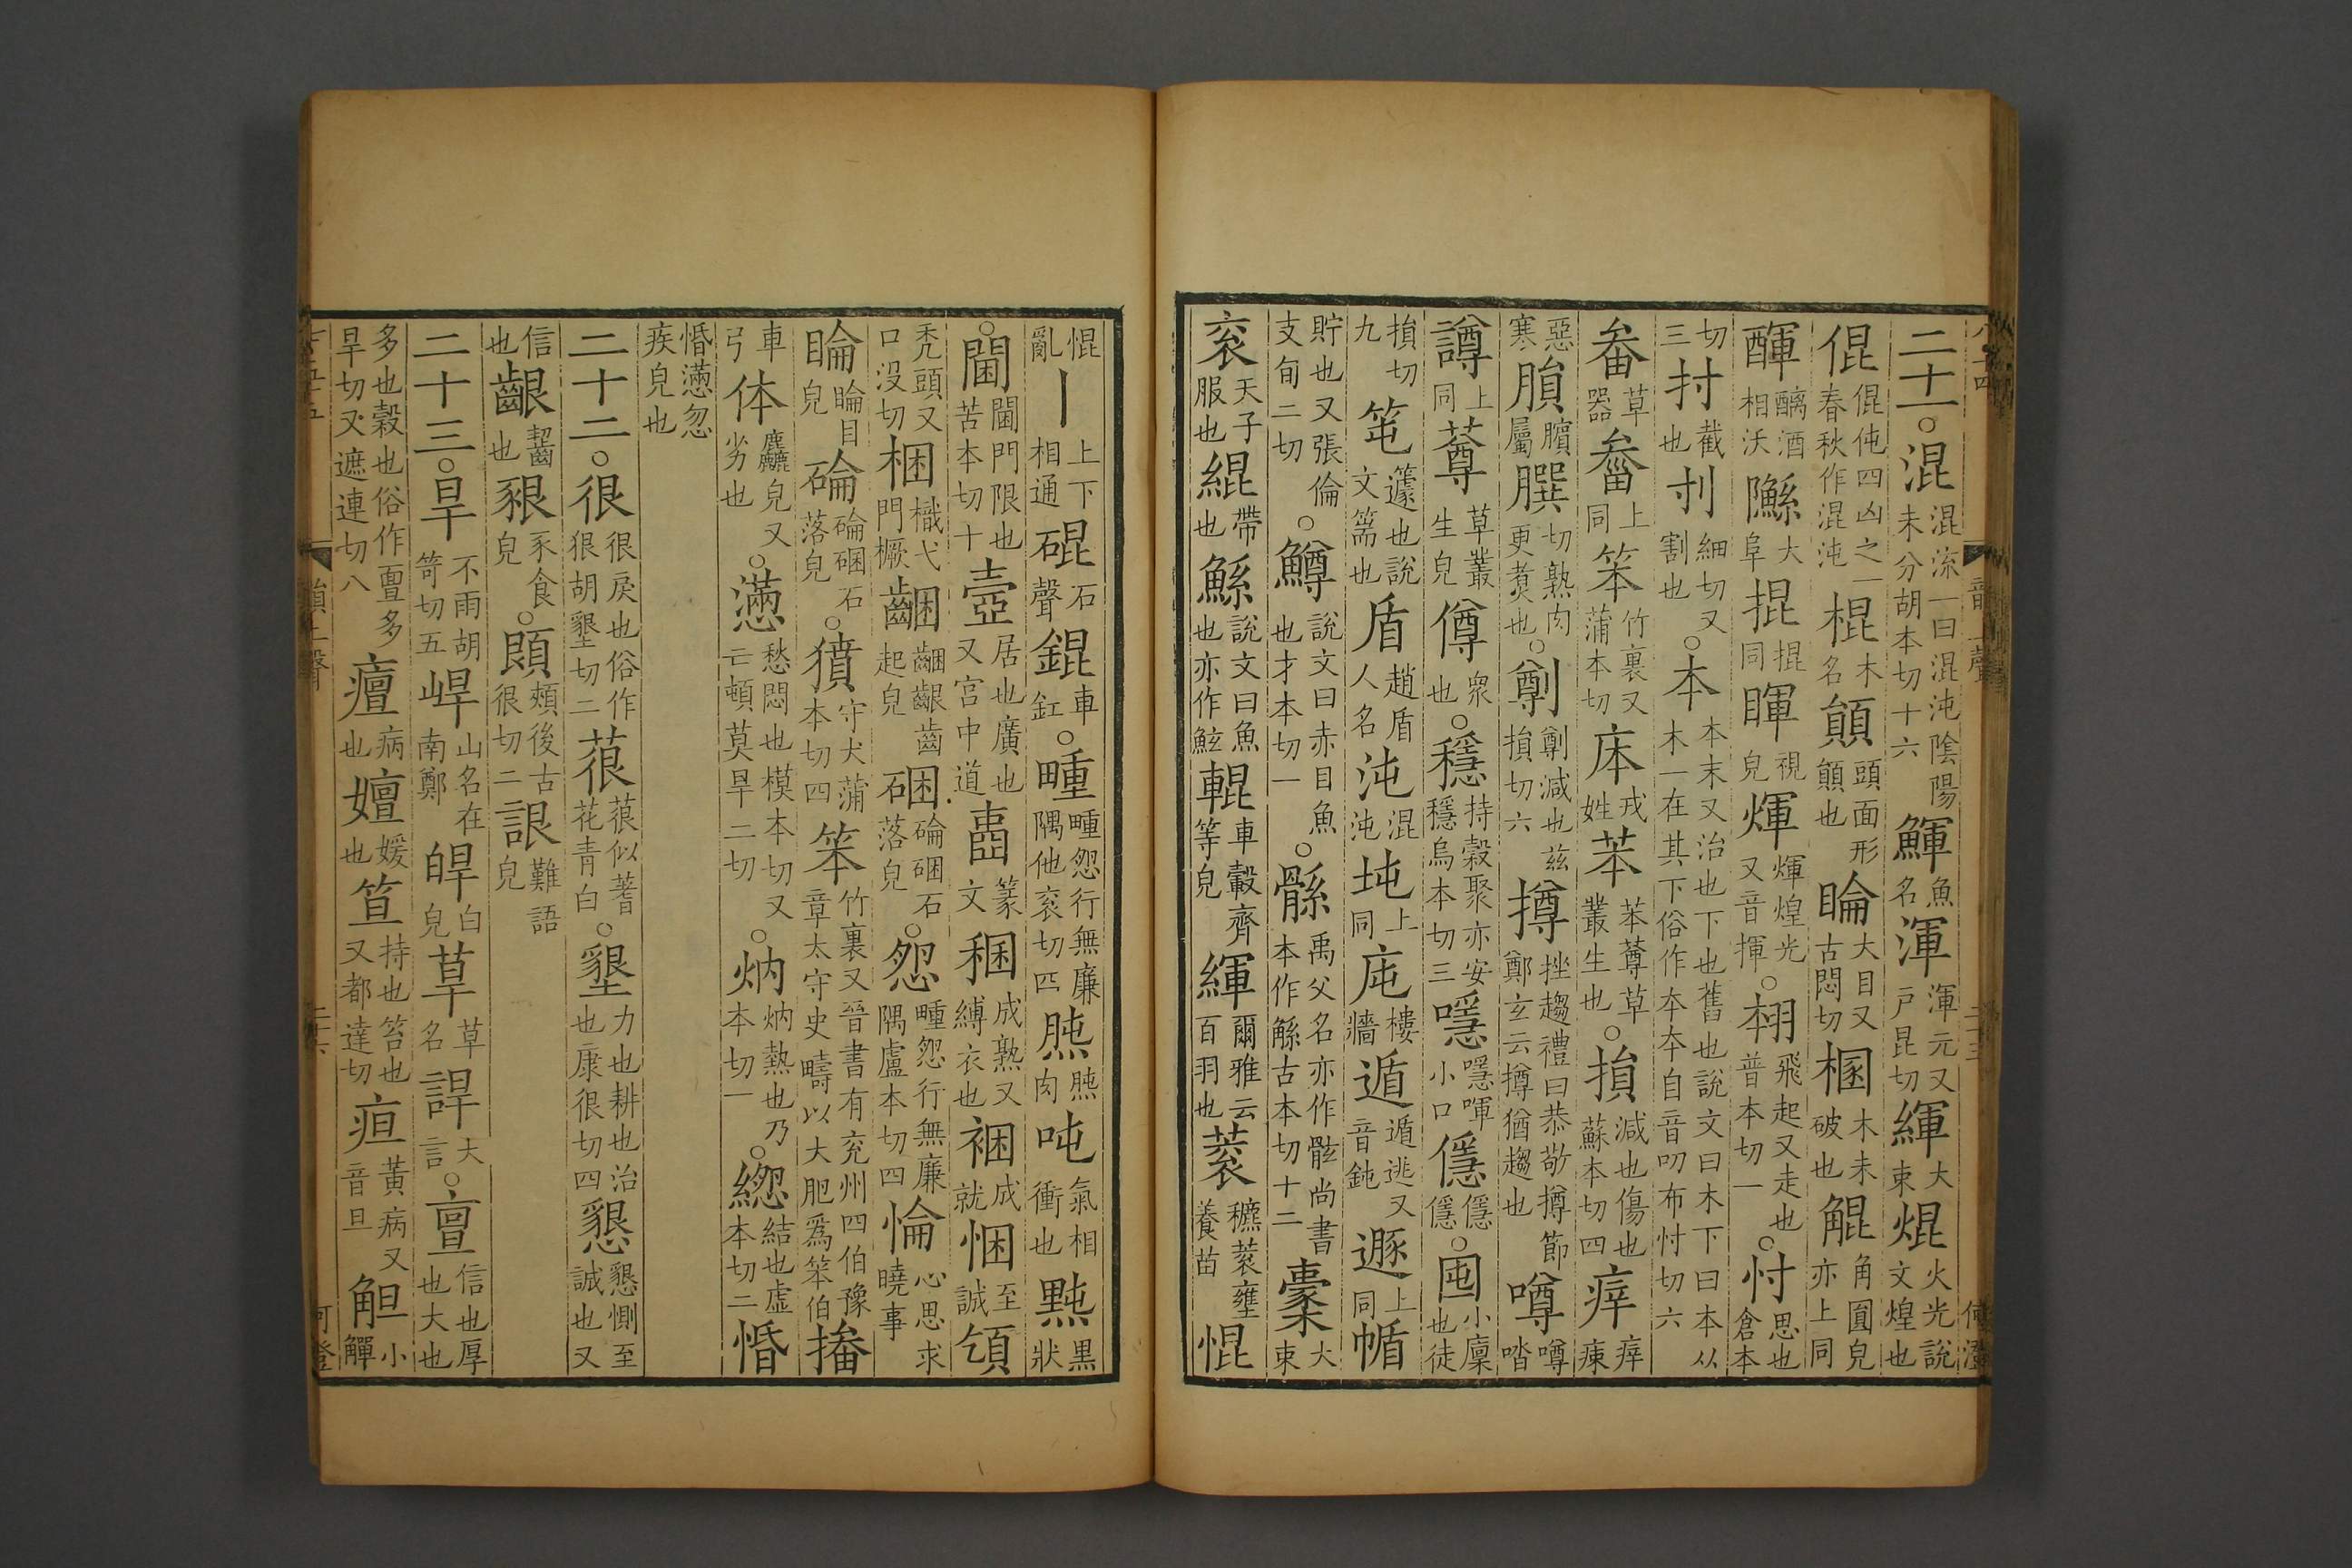 二十一○混混流一曰混沌隂陽未分胡本切十六鯶魚名渾渾元又戸昆切緷大束焜火光說文煌也
倱倱伅四凶之一春秋作混沌棍木名顚頭面形顚也睔大目又古悶切梱木未破也䚠角圓皃亦上同
䣺䤍酒相沃鯀大阜掍掍同睴視皃煇煇煌光又音揮○翉飛起又走也普本切一○忖思也倉本
切三㧒截也刌細切又割也○本本末又治也下也舊也說文曰木下曰本从木一在其下俗作夲夲自音叨布忖切六
畚草器𤲙上同笨竹裏又蒲本切㡷戎姓苯苯䔿草叢生也○損減也傷也蘇本切四㾕㾕㾣
惡寒䐣臏屬䐪切熟肉更煑也○劕劕減也兹損切六撙挫趨禮曰恭敬撙節鄭玄云撙猶趨也噂噂㳫
譐上同䔿草叢生皃僔衆也○穩持穀聚亦安穩烏本切三㥯㥯喗小口㒚㒚㒚○囤小廩也徒
損切九笔籧也說文篅也盾趙盾人名沌混沌坉上同庉樓牆遁遁逃又音鈍遯上同㡒
貯也又張倫支旬二切○鱒說文曰赤目魚也才本切一○䯣禹父名亦作骸尚書本作鯀古本切十二橐大束
衮天子服也緄帶也鯀說文曰魚也亦作鮌輥車轂齊等皃緷爾雅云百羽也蔉穮蔉壅養苗惃
惃亂丨上下相通硍石聲錕車釭○畽畽㤪行無廉隅他衮切四䏜䏜肉吨氣相衝也黗黑狀
○閫閫門限也苦本切十壼居也廣也又宫中道𡇈篆文稇成熟又縛衣也裍成就悃至誠頎
秃頭又口没切梱橛弋門橛齫齫齦齒起皃硱碖硱石落皃○㤪畽㤪行無廉隅盧本切四惀心思求曉事
睔睔目皃碖碖硱石落皃○獖守犬蒲本切四笨竹裏又晉書有兖州四伯豫章太守史疇以大肥爲笨伯㨧
車弓体麤皃又劣也○懣愁悶也模本切又亡頓莫旱二切○炳炳熱也乃本切一○緫結也虚本切二惛
惛懣忽疾皃也
二十二○很很戾也俗作狠胡墾切二詪詪似蓍花青白○墾力也耕也治也康很切四懇懇惻至誠也又
信也齦齧也豤豕食皃○頣頰後古很切二詪難語皃
二十三○旱不雨胡笴切五㟁山名在南鄭皔白皃䓍草名䛞大言○亶信也厚也大也
多也穀也俗作亶多旱切又遮連切八㿅病也嬗媛也笪持也笞也又都達切疸黃病又音旦觛小觶